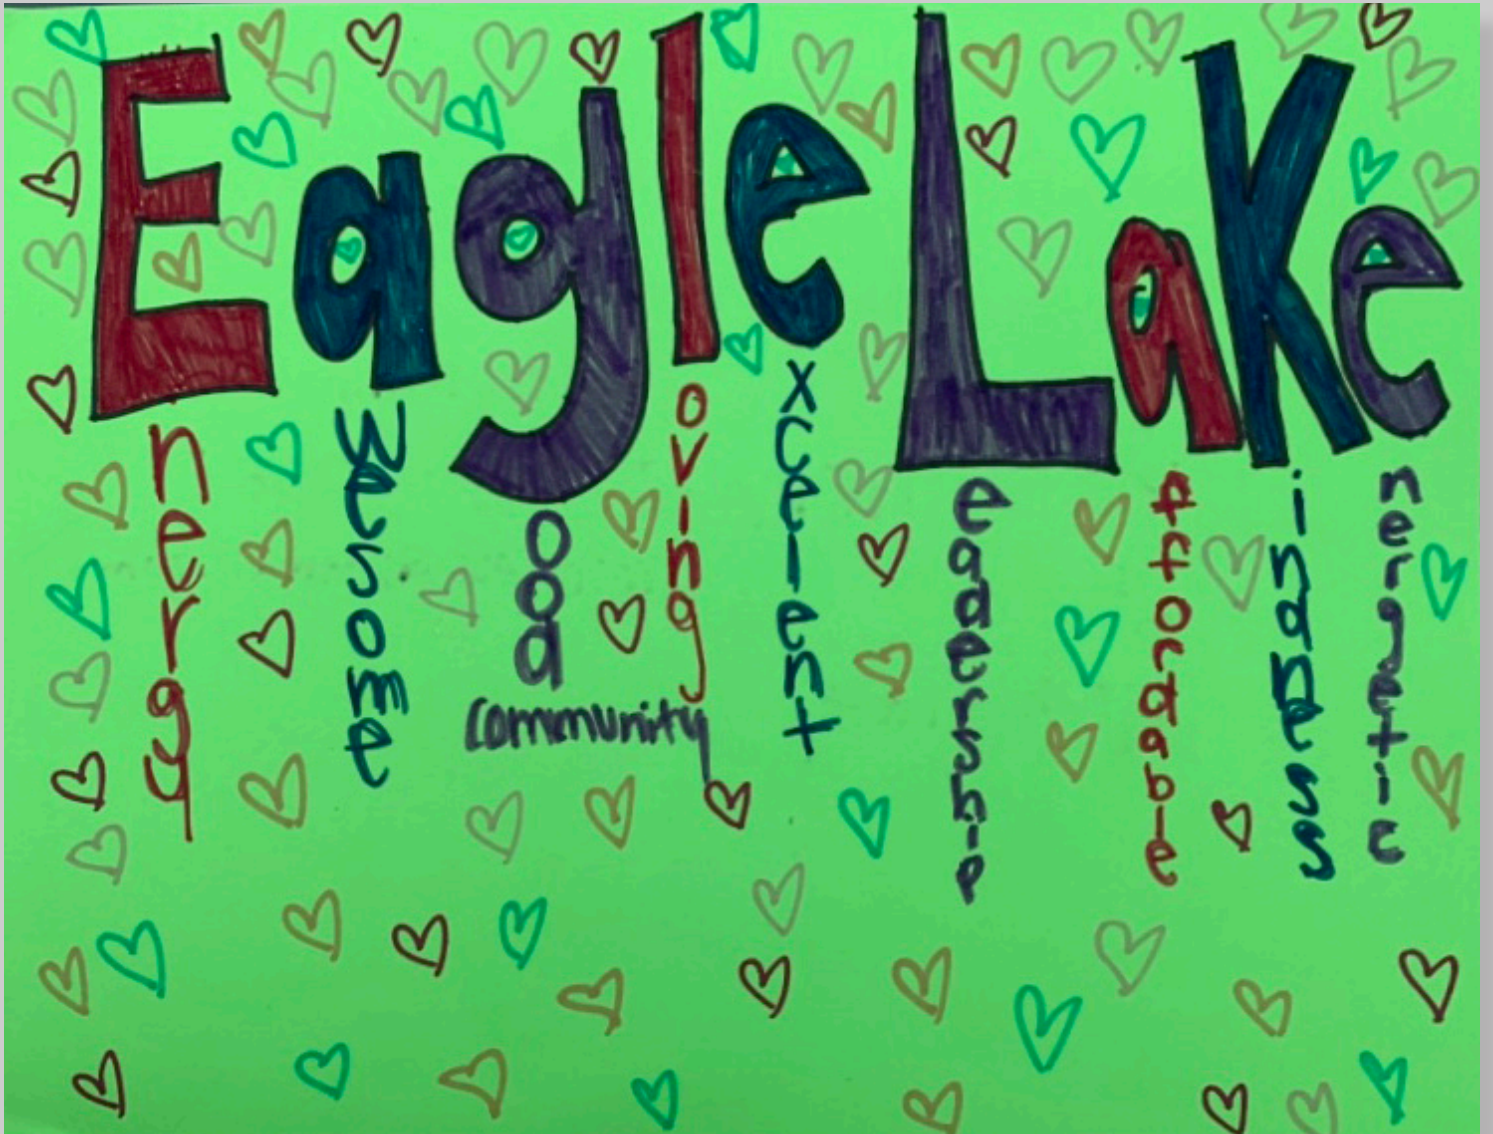 Eagle Lake
nergy
wesome
ood
community
oving
xcelent
eadership
ffordable
indness
nergetic